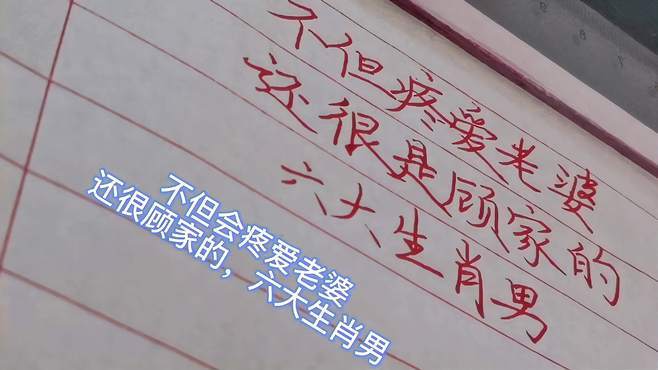 不但疼爱老婆
还很是顾家的
六大生肖男
不但会疼爱老婆
还很顾家的，六大生肖男